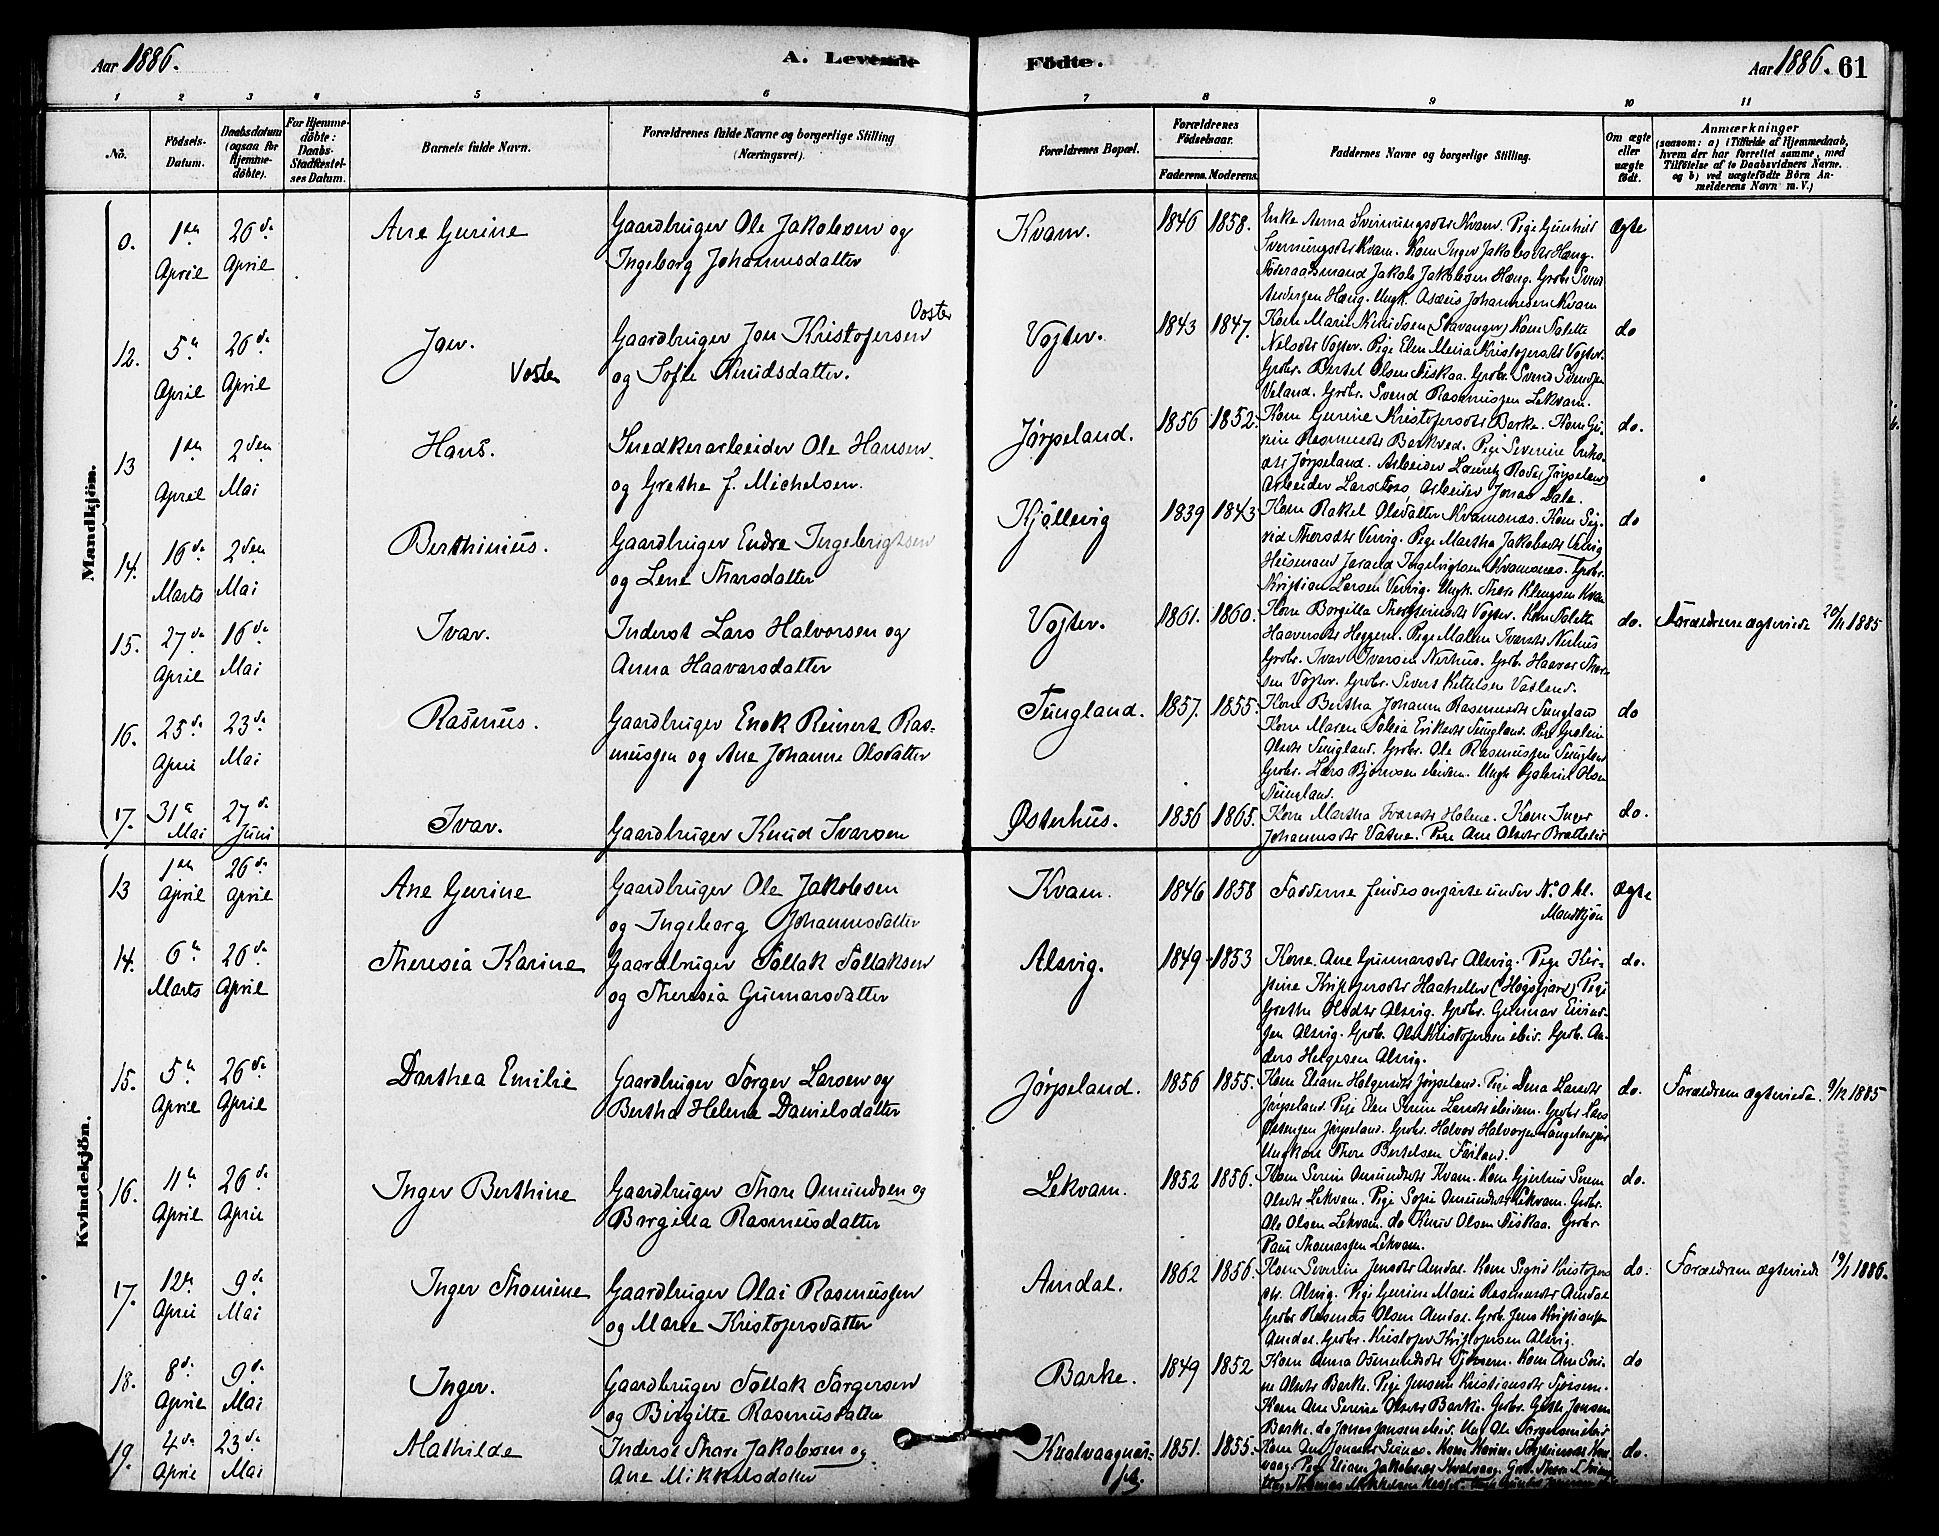 Aar 1886.
A. Levende
Födte.
Aar 1886. 61
1 2 3 4 5 6 7 8 9 10 11
No.
Födsels-
Datum.
Daabsdatum
(ogsaa for
Hjemme-
döbte).
For Hjemme-
döbte:
Daabs-
Stadfæstel-
ses Datum.
Barnets fulde Navn.
Forældrenes fulde Navne og borgerlige Stilling
(Næringsvei).
Forældrenes Bopæl.
Forældrenes
Födselsaar.
Faderens. Moderens.
Faddernes Navne og borgerlige Stilling.
Om ægte
eller
uægte
födt.
Anmærkninger
(saasom: a) i Tilfælde af Hjemmedaab,
hvem der har forrettet samme, med
Tilföielse af to Daabsvidners Navne.
og b) ved uægtefödte Börn An-
melderens Navn m. V.)
Mandkjön.
0. 1ste April 26de April Ane Gurine
Gaardbruger Ole Jakobsen og
Ingeborg Johannesdatter
Kvam. 1846 1858.
Enke Anna Sverningsdtr Kvam. Pige Gunhild
Sverningsdtr Kvam. Kone Inger Jakobsdtr Høng.
Føderaadsmand Jakob Jakobsen Høng. Grdbr Svend
Andersen Høng. Ungk. Johannesen Kvam
Ægte
12. 5te April 26de April Jon. Voster
Gaardbruger Jon Kristofersen Voster
og Sofie Knudsdatter.
Vojter. 1843 1847.
Kone Marie Knudsen (Stavanger) Kone Talette
Nelsdtr Vojter. Pige Elen Maria Kristofersdtr Vojter.
Grdbr. Bertel Olsen Fiskaa. Grdbr. Svend Svendsen
Veland. Grdbr. Svend Rasmussen Lekvam.
do
13 1ste April 2den Mai Hans.
Snedkerarbeider Ole Hansen
og Grethe f. Michelsen.
Jørpeland. 1856 1852.
Kone Gurine Kristofersdtr Barke. Kone Gu-
rine Rasmusdtr Barkved. Pige Severine Eriks-
dtr Jørpeland. Arbeider Lauritz Jørpeland
Arbeider Lars Fos Arbeider Jonas Dale.
do.
14. 16de Marts 2den Mai Berthinius.
Gaardbruger Endre Ingebrigtsen
og Lene Tharsdatter
Kjøllevig 1839 1843
Kone Rakel Olsdatter Kvamsnæs. Kone Sig-
rid Thorsdtr Vervig. Pige Martha Jakobsdtr Vervig
Husmand Ingebrigtsen Kvamsnæs. Grdbr.
Kristian Larsen Vervig. Ungk. Thore Kvam
do
15. 27de April 16de Mai Ivar.
Inderst Lars Halvorsen og
Anna Haavarsdatter
Vojter. 1861. 1860.
Kone Borgilla Thorsteinsdtr Vojter. Kone Talette
Haaversdtr Heggem. Pige Malen Ivarsdtr Nerhus
Grdbr. Ivar Ivarsen Nerhus. Grdbr. Haavar Thor-
sen Vojter. Grdbr. Sivert Kittelsen Vasland.
do. Forældrene ægteviede 20/11 1885
16. 25de April 23de Mai Rasmus.
Gaardbruger Enok Reinert Ras-
mussen og Ane Johanne Olsdatter
Tungland. 1857. 1855.
Kone Bertha Johanne Rasmusdtr Tungland
Kone Maren Eriksdtr Tungland. Pige
Olsdtr Tungland. Grdbr. Ole Rasmussen Tungland
Grdbr. Lars Bjørnsen ibidem. Ungk Gabriel Olsen
Tungland.
do
17. 31te Mai 27de Juni Ivar.
Gaardbruger Knud Ivarsen
Østerhus. 1856 1865.
Kone Martha Ivarsdtr Helene. Kone Inger
Johannesdtr Vatne. Pige Ane Olsdtr Bratteli
do.
Kvindekjön.
13 1ste April 26de April Ane Gurine
Gaardbruger Ole Jakobsen
og Ingeborg Johannesdatter
Kvam. 1846 1858
Fadderne findes anførte under No 0 bl.
Mandkjøn
Ægte
14. 6te Marts 26de April Theresia Karine
Gaardbruger Tollak Tollaksen
og Theresia Gunnarsdatter
Alsvig. 1849 1853
Kone Ane Gunnarsdtr Alsvig. Pige Kir-
stine Kristofersdtr Haaheller (Høgsfjord) Pige
Grethe Olsdtr Alsvig. Grdbr. Gunnar Eivind-
sen Alsvig. Grdbr. Ole Kristofersen ibid. Grdbr. An-
ders Helgesen Alsvig.
do.
15. 5te April 26de April Dorthea Emilie
Gaardbruger Torger Larsen og
Bertha Helene Danielsdatter
Jørpeland. 1856 1855.
Kone Eliane Helgesdtr Jørpeland. Pige Dina Larsdtr
Jørpeland. Pige Elen Serine Larsdtr ibidem. Grdbr. Lars
Jørpeland. Grdbr. Halvor Halvorsen
Ungkarl Thore Bertelsen
do. Forældrene ægteviede 9/12 1885
16. 11te April 26de April Inger Berthine
Gaardbruger Thore Omundsen og
Borgilla Rasmusdatter
Lekvam. 1852 1856.
Kone Serine Omundsdtr Kvam. Kone Serine
Olsdtr Lekvam. Pige Sofie Omundsdtr Lekvam. Grdbr.
Ole Olsen Lekvam. do Knud Olsen Fiskaa. Grdbr
Paul Thomassen Lekvam.
do.
17. 12te April 9de Mai Inger Thomine
Gaardbruger Olai Rasmussen
og Marie Kristofersdatter
Amdal. 1862 1856.
Kone Severine Jensdtr Amdal. Kone Sigrid Kristofers
dtr. Alsvig. Pige Gurine Marie Rasmusdtr Amdal
Grdbr Rasmus Olsen Amdal. Grdbr. Jens Kristiansen
Amdal. Grdbr. Kristofer Kristofersen Alsvig.
do. Forældrene ægteviede 19/1 1886.
18. 8de April 9de Mai Inger.
Gaardbruger Tollak Torgersen
og Birgitte Rasmusdatter
Barke. 1849 1852
Kone Anna Osmundsdtr Kone Ane Seri-
ne Olsdtr Barke. Pige Jensine Kristiansdtr
Kone Ane Serine Olsdtr Barke. Grdbr. Jonsen
Barke. do Jonas Jonassen ibid. Ole Torgersen ibid
do
19. 4de April 23de Mai Mathilde
Inderst Thore Jakobsen og
Ane Mikkelsdatter
1851. 1855.
do.